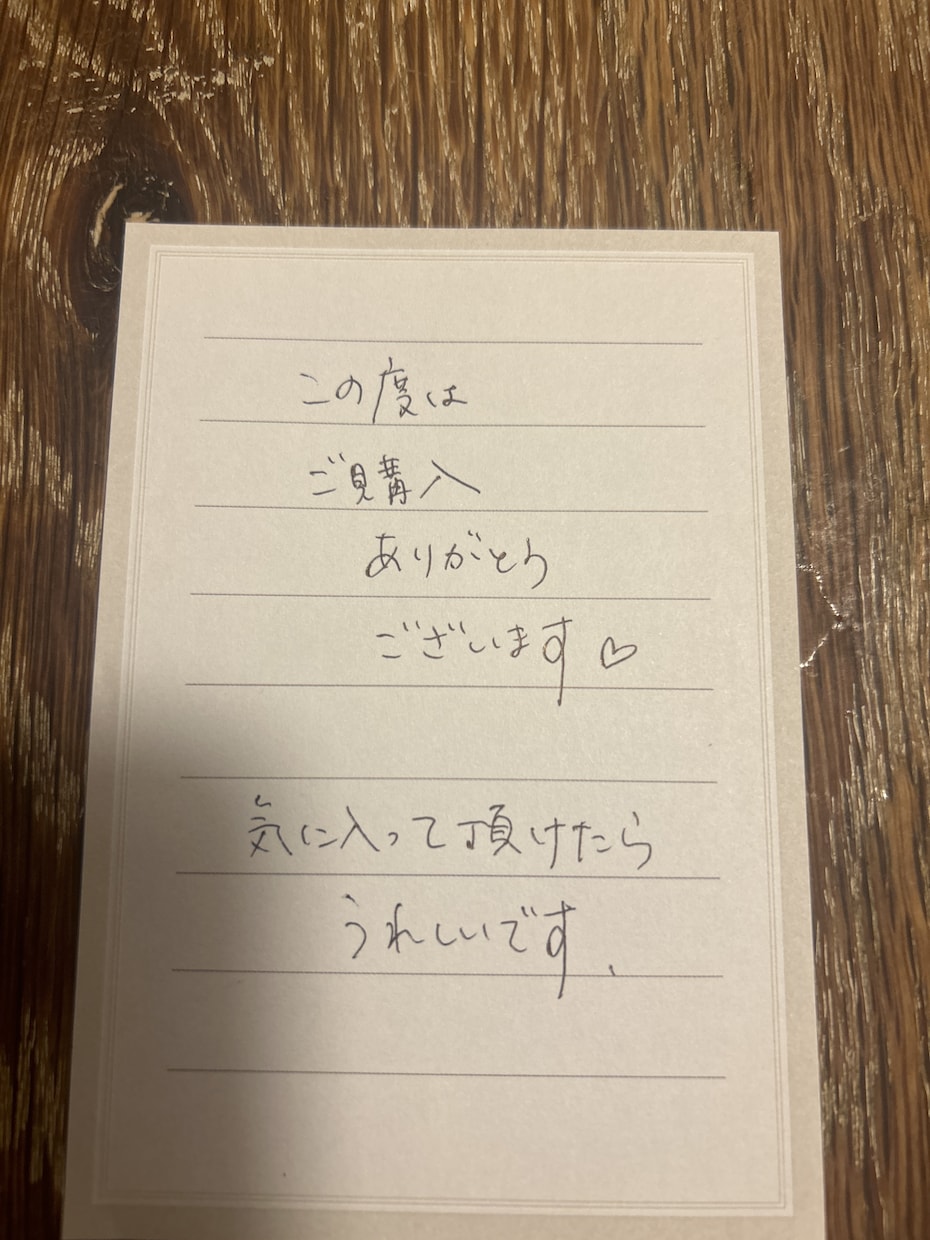 この度は
ご購入
ありがとう
ございます♡
気に入って頂けたら
うれしいです、